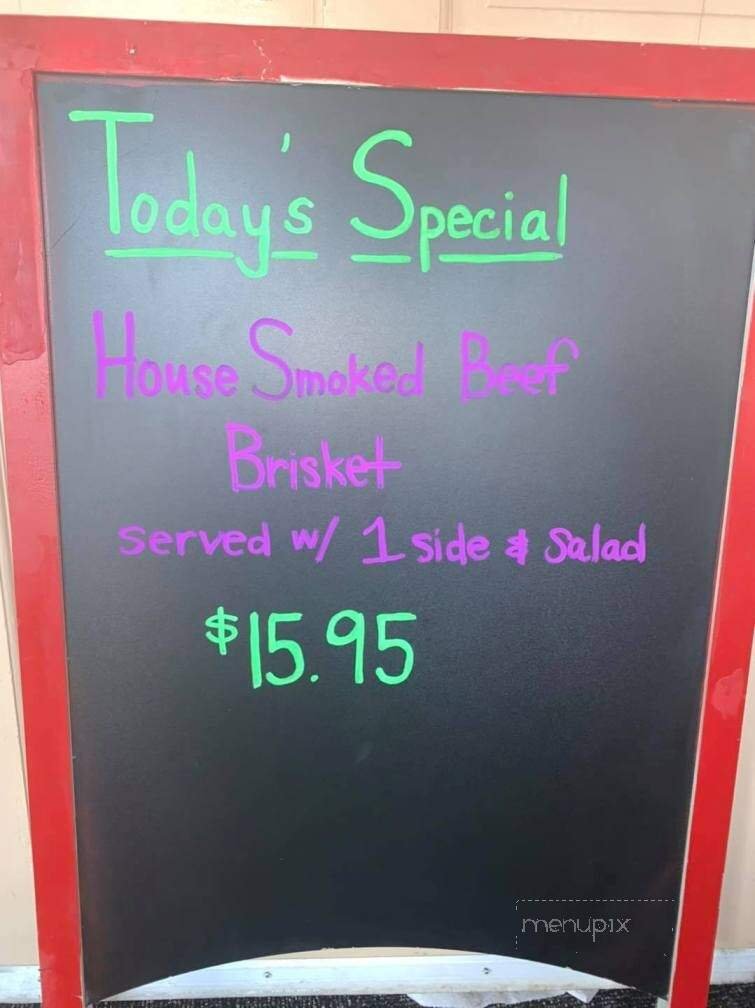 Today's Special
House Smoked Beef
Brisket
served w/ 1 side & Salad
$15.95
menupix